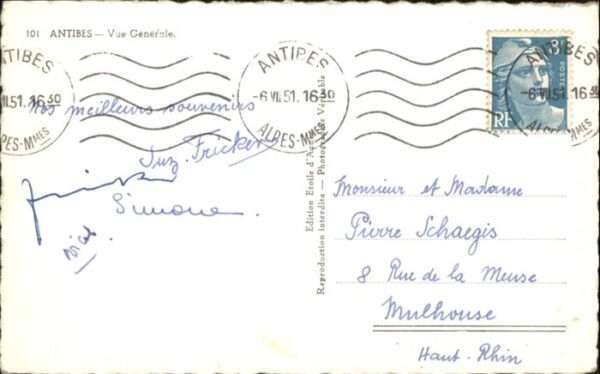 101 ANTIBES — Vue Générale.
ANTIBES
VII.51. 16 30
ALPES-MMES
ANTIBES
-6 VII.51. 16 30
ALPES-MMES
ANTIBES
-6 VII.51. 16 30
3F
POSTES
RF
Nos meilleurs souvenirs
Suz. Fricker
Simone.
Edition Etoile d'Azur
Reproduction Interdite — Photographie Véritable
Monsieur et Madame
Pierre Schaegis
8 Rue de la Meuse
Mulhouse
Haut-Rhin